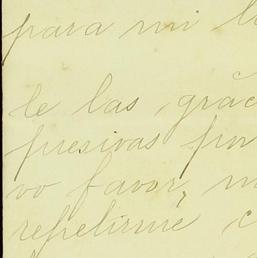 para mi
le las grac
presivas por
vo favor,
repetirme